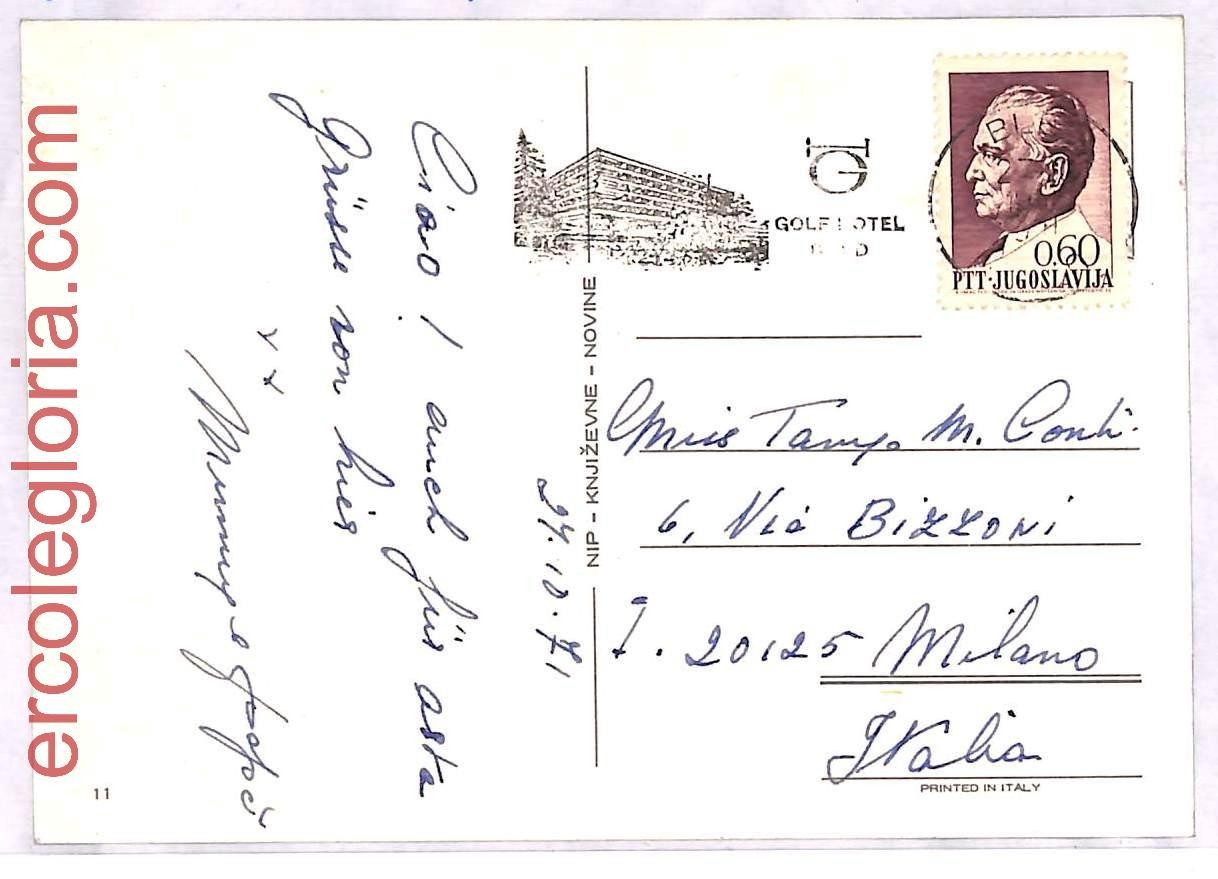 ercolegloria.com
Ciao! auch für asta
Grüsse von hier
24.10.71
11
NIP - KNJIŽEVNE - NOVINE
GOLF HOTEL
BLED
0.60
PTT·JUGOSLAVIJA
M. Conti
6, Via Bizzoni
I. 20125 Milano
Italia
PRINTED IN ITALY